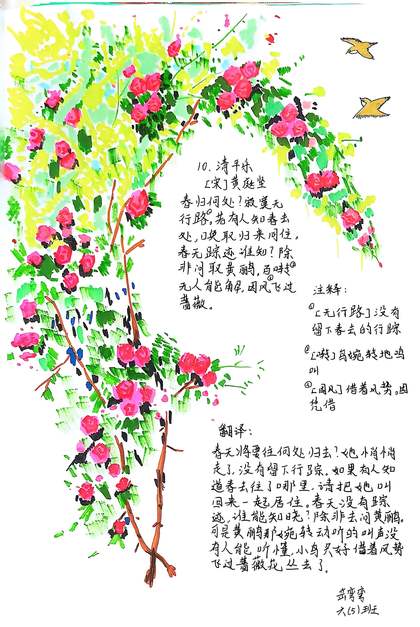 10. 清平乐
[宋]黄庭坚
春归何处?寂寞无
行路①。若有人知春去
处,唤取归来同住。
春无踪迹谁知?除
非问取黄鹂,百啭②
无人能解,因风③飞过
蔷薇。
注释:
①[无行路]没有
留下春去的行踪
②[啭]鸟婉转地鸣
叫
③[因风]借着风势。因
凭借
翻译:
春天将要往何处归去?她悄悄
走了,没有留下行踪。如果有人知
道春去往了哪里,请把她叫
回来一起居住。春天没有踪
迹,谁能知晓?除非去问黄鹂。
可是黄鹂那婉转动听的叫声没
有人能听懂,小鸟只好借着风势
飞过蔷薇花丛去了。
六(5)班